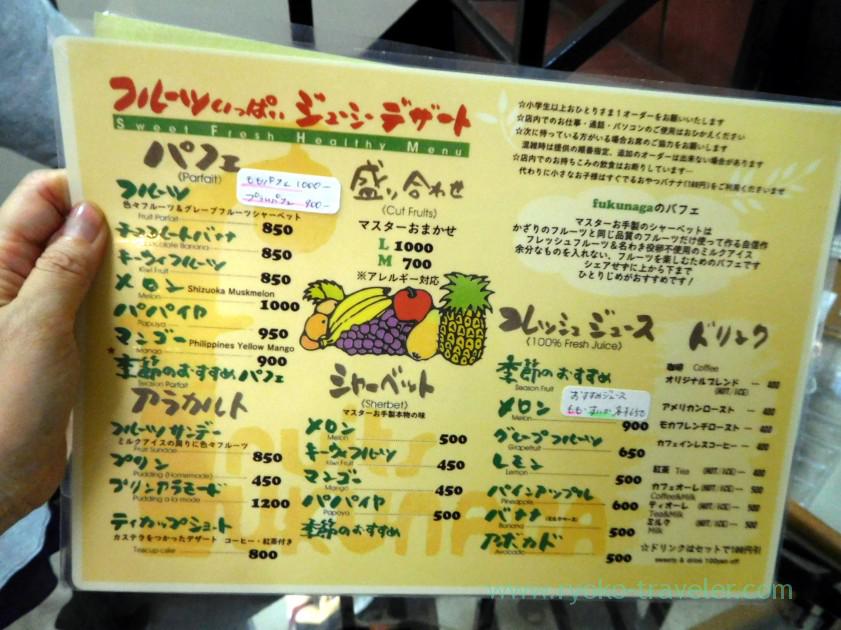 フルーツいっぱい ジューシーデザート
Sweet Fresh Healthy Menu
パフェ
(Parfait)
ももパフェ 1000-
900-
フルーツ
色々フルーツ&グレープフルーツシャーベット
Fruit Parfait 850
チョコレートバナナ
Chocolate Banana 850
キーウィフルーツ
Kiwi Fruit 850
メロン Shizuoka Muskmelon
Melon 1000
パパイヤ
Papaya 950
マンゴー Philippines Yellow Mango
Mango 900
季節のおすすめパフェ
Season Parfait
アラカルト
フルーツサンデー
ミルクアイスの周りに色々フルーツ
Fruit Sundae 850
プリン
Pudding (Homemade) 450
プリンアラモード
Pudding a la mode 1200
ティカップショート
カステラをつかったデザート コーヒー・紅茶付き
Teacup cake 800
盛り合わせ
(Cut Fruits)
マスターおまかせ
L 1000
M 700
※アレルギー対応
シャーベット
(Sherbet)
マスターお手製本物の味
メロン
Melon 500
キーウィフルーツ
Kiwi Fruit 450
マンゴー
Mango 450
パパイヤ
Papaya 500
季節のおすすめ
☆小学生以上おひとりさま1オーダーをお願いいたします
☆店内でのお仕事・通話・パソコンのご使用はおひかえください
☆次に待っている方がいる場合お席のご協力をお願いします
混雑時は提供の順番指定、追加のオーダーは出来ない場合があります
☆店内でのお持ちこみの飲食はお断りしています…
代わりに小さなお子様はすぐでるおやつバナナ(180円)をご利用くださいませ
fukunagaのパフェ
マスターお手製のシャーベットは
かざりのフルーツと同じ品質のフルーツだけ使って作る自信作
フレッシュフルーツ&名わき役卵不使用のミルクアイス
余分なものを入れない、フルーツを楽しむためのパフェです
シェアせずに上から下まで
ひとりじめがおすすめです!
フレッシュジュース
(100% Fresh Juice)
季節のおすすめ
Season Fruit
おすすめジュース
もも・すいか
メロン
Melon 900
グレープフルーツ
Grapefruit 650
レモン
Lemon 500
パインアップル
Pineapple 600
バナナ
Banana 500
アボカド
Avocado 500
ドリンク
珈琲 Coffee
オリジナルブレンド — 400
(HOT/ICE)
アメリカンロースト — 400
モカフレンチロースト — 400
カフェインレスコーヒー — 400
紅茶 Tea (HOT/ICE) — 400
カフェオーレ (HOT/ICE) — 500
Coffee&Milk
ティオーレ (HOT/ICE) — 500
Tea&Milk
ミルク (HOT/ICE) — 500
Milk
☆ドリンクはセットで100円引
sweets & drink 100yen off
www.ryoko-traveler.com